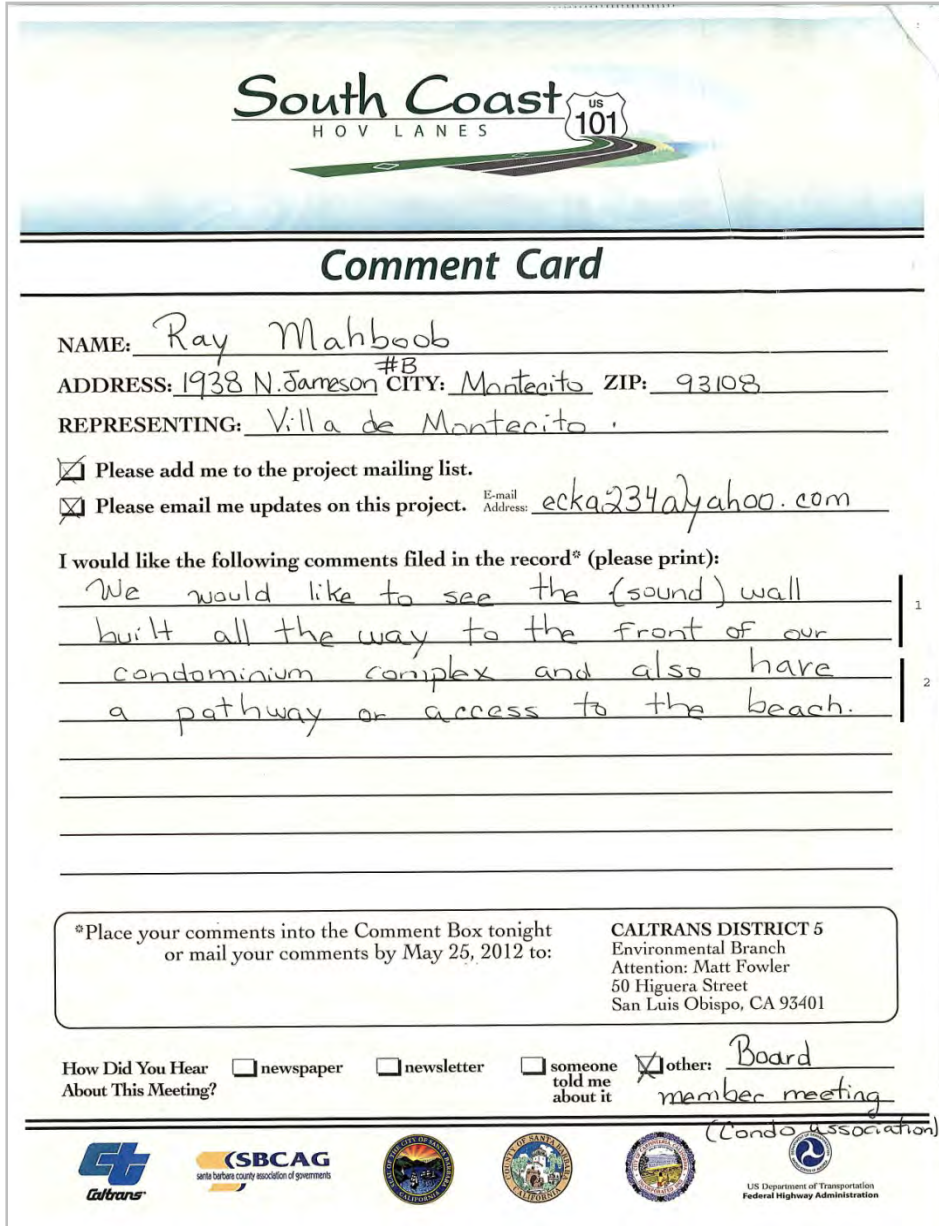 South Coast
HOV LANES
US
101
Comment Card
NAME: Ray Mahboob
#B
ADDRESS: 1938 N. Jameson CITY: Montecito ZIP: 93108
REPRESENTING: Villa de Montecito.
Please add me to the project mailing list.
Please email me updates on this project. E-mail Address: ecka234@yahoo.com
I would like the following comments filed in the record* (please print):
We would like to see the (sound) wall
1
built all the way to the front of our
condominium complex and also have
2
a pathway or access to the beach.
*Place your comments into the Comment Box tonight
or mail your comments by May 25, 2012 to:
CALTRANS DISTRICT 5
Environmental Branch
Attention: Matt Fowler
50 Higuera Street
San Luis Obispo, CA 93401
How Did You Hear
About This Meeting?
newspaper
newsletter
someone
told me
about it
other: Board
member meeting
(Condo association)
Caltrans
SBCAG
santa barbara county association of governments
COUNTY OF SANTA BARBARA
CALIFORNIA
US Department of Transportation
Federal Highway Administration